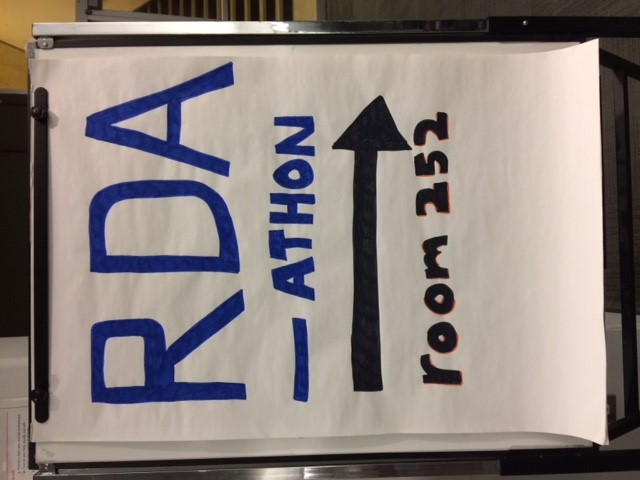 RDA
- ATHON
room 252